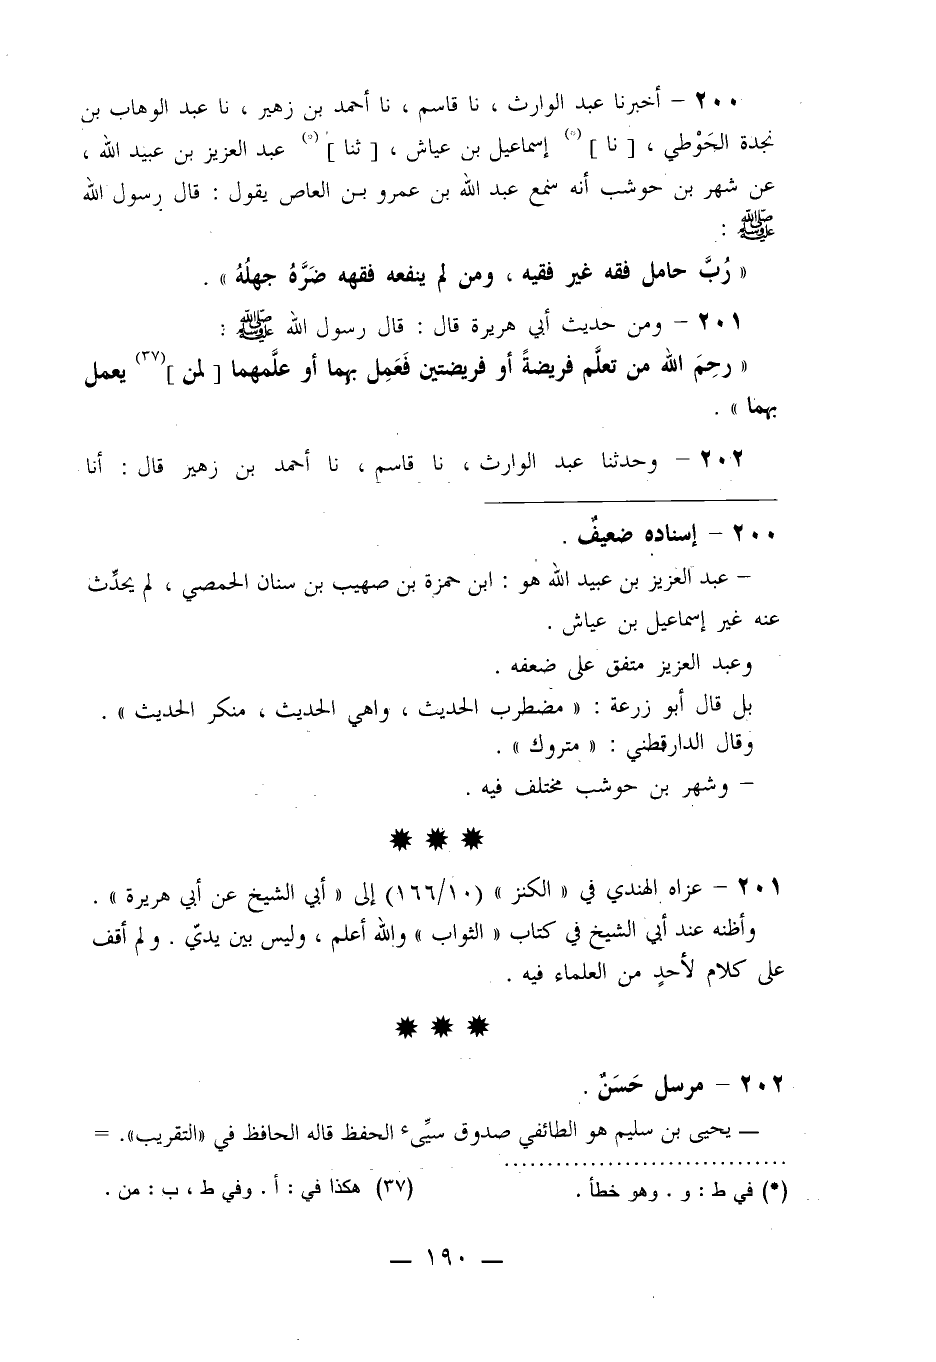 ٢٠٠ – أخبرنا عبد الوارث ، نا قاسم ، نا أحمد بن زهير ، نا عبد الوهاب بن
نجدة الحَوْطي ، [ نا ](*) إسماعيل بن عياش ، [ ثنا ](*) عبد العزيز بن عبيد الله ،
عن شهر بن حوشب أنه سمع عبد الله بن عمرو بن العاص يقول : قال رسول الله
ﷺ :
« رُبَّ حامل فقه غير فقيه ، ومن لم ينفعه فقهه ضَرَّهُ جهلُهُ » .
٢٠١ – ومن حديث أبي هريرة قال : قال رسول الله ﷺ :
« رحِمَ الله من تعلَّم فريضةً أو فريضتين فَعَمِل بهما أو علَّمهما [ لمن ](٣٧) يعمل
بهما » .
٢٠٢ – وحدثنا عبد الوارث ، نا قاسم ، نا أحمد بن زهير قال : أنا
٢٠٠ – إسناده ضعيفٌ .
– عبد العزيز بن عبيد الله هو : ابن حمزة بن صهيب بن سنان الحمصي ، لم يحدِّث
عنه غير إسماعيل بن عياش .
وعبد العزيز متفق على ضعفه .
بل قال أبو زرعة : « مضطرب الحديث ، واهي الحديث ، منكر الحديث » .
وقال الدارقطني : « متروك » .
– وشهر بن حوشب مختلف فيه .
٢٠١ – عزاه الهندي في « الكنز » (١٦٦/١٠) إلى « أبي الشيخ عن أبي هريرة » .
وأظنه عند أبي الشيخ في كتاب « الثواب » والله أعلم ، وليس بين يديّ . ولم أقف
على كلام لأحدٍ من العلماء فيه .
٢٠٢ – مرسل حَسَنٌ .
– يحيى بن سليم هو الطائفي صدوق سيِّىء الحفظ قاله الحافظ في «التقريب». =
(*) في ط : و . وهو خطأ . (٣٧) هكذا في : أ . وفي ط ، ب : من .
– ١٩٠ –